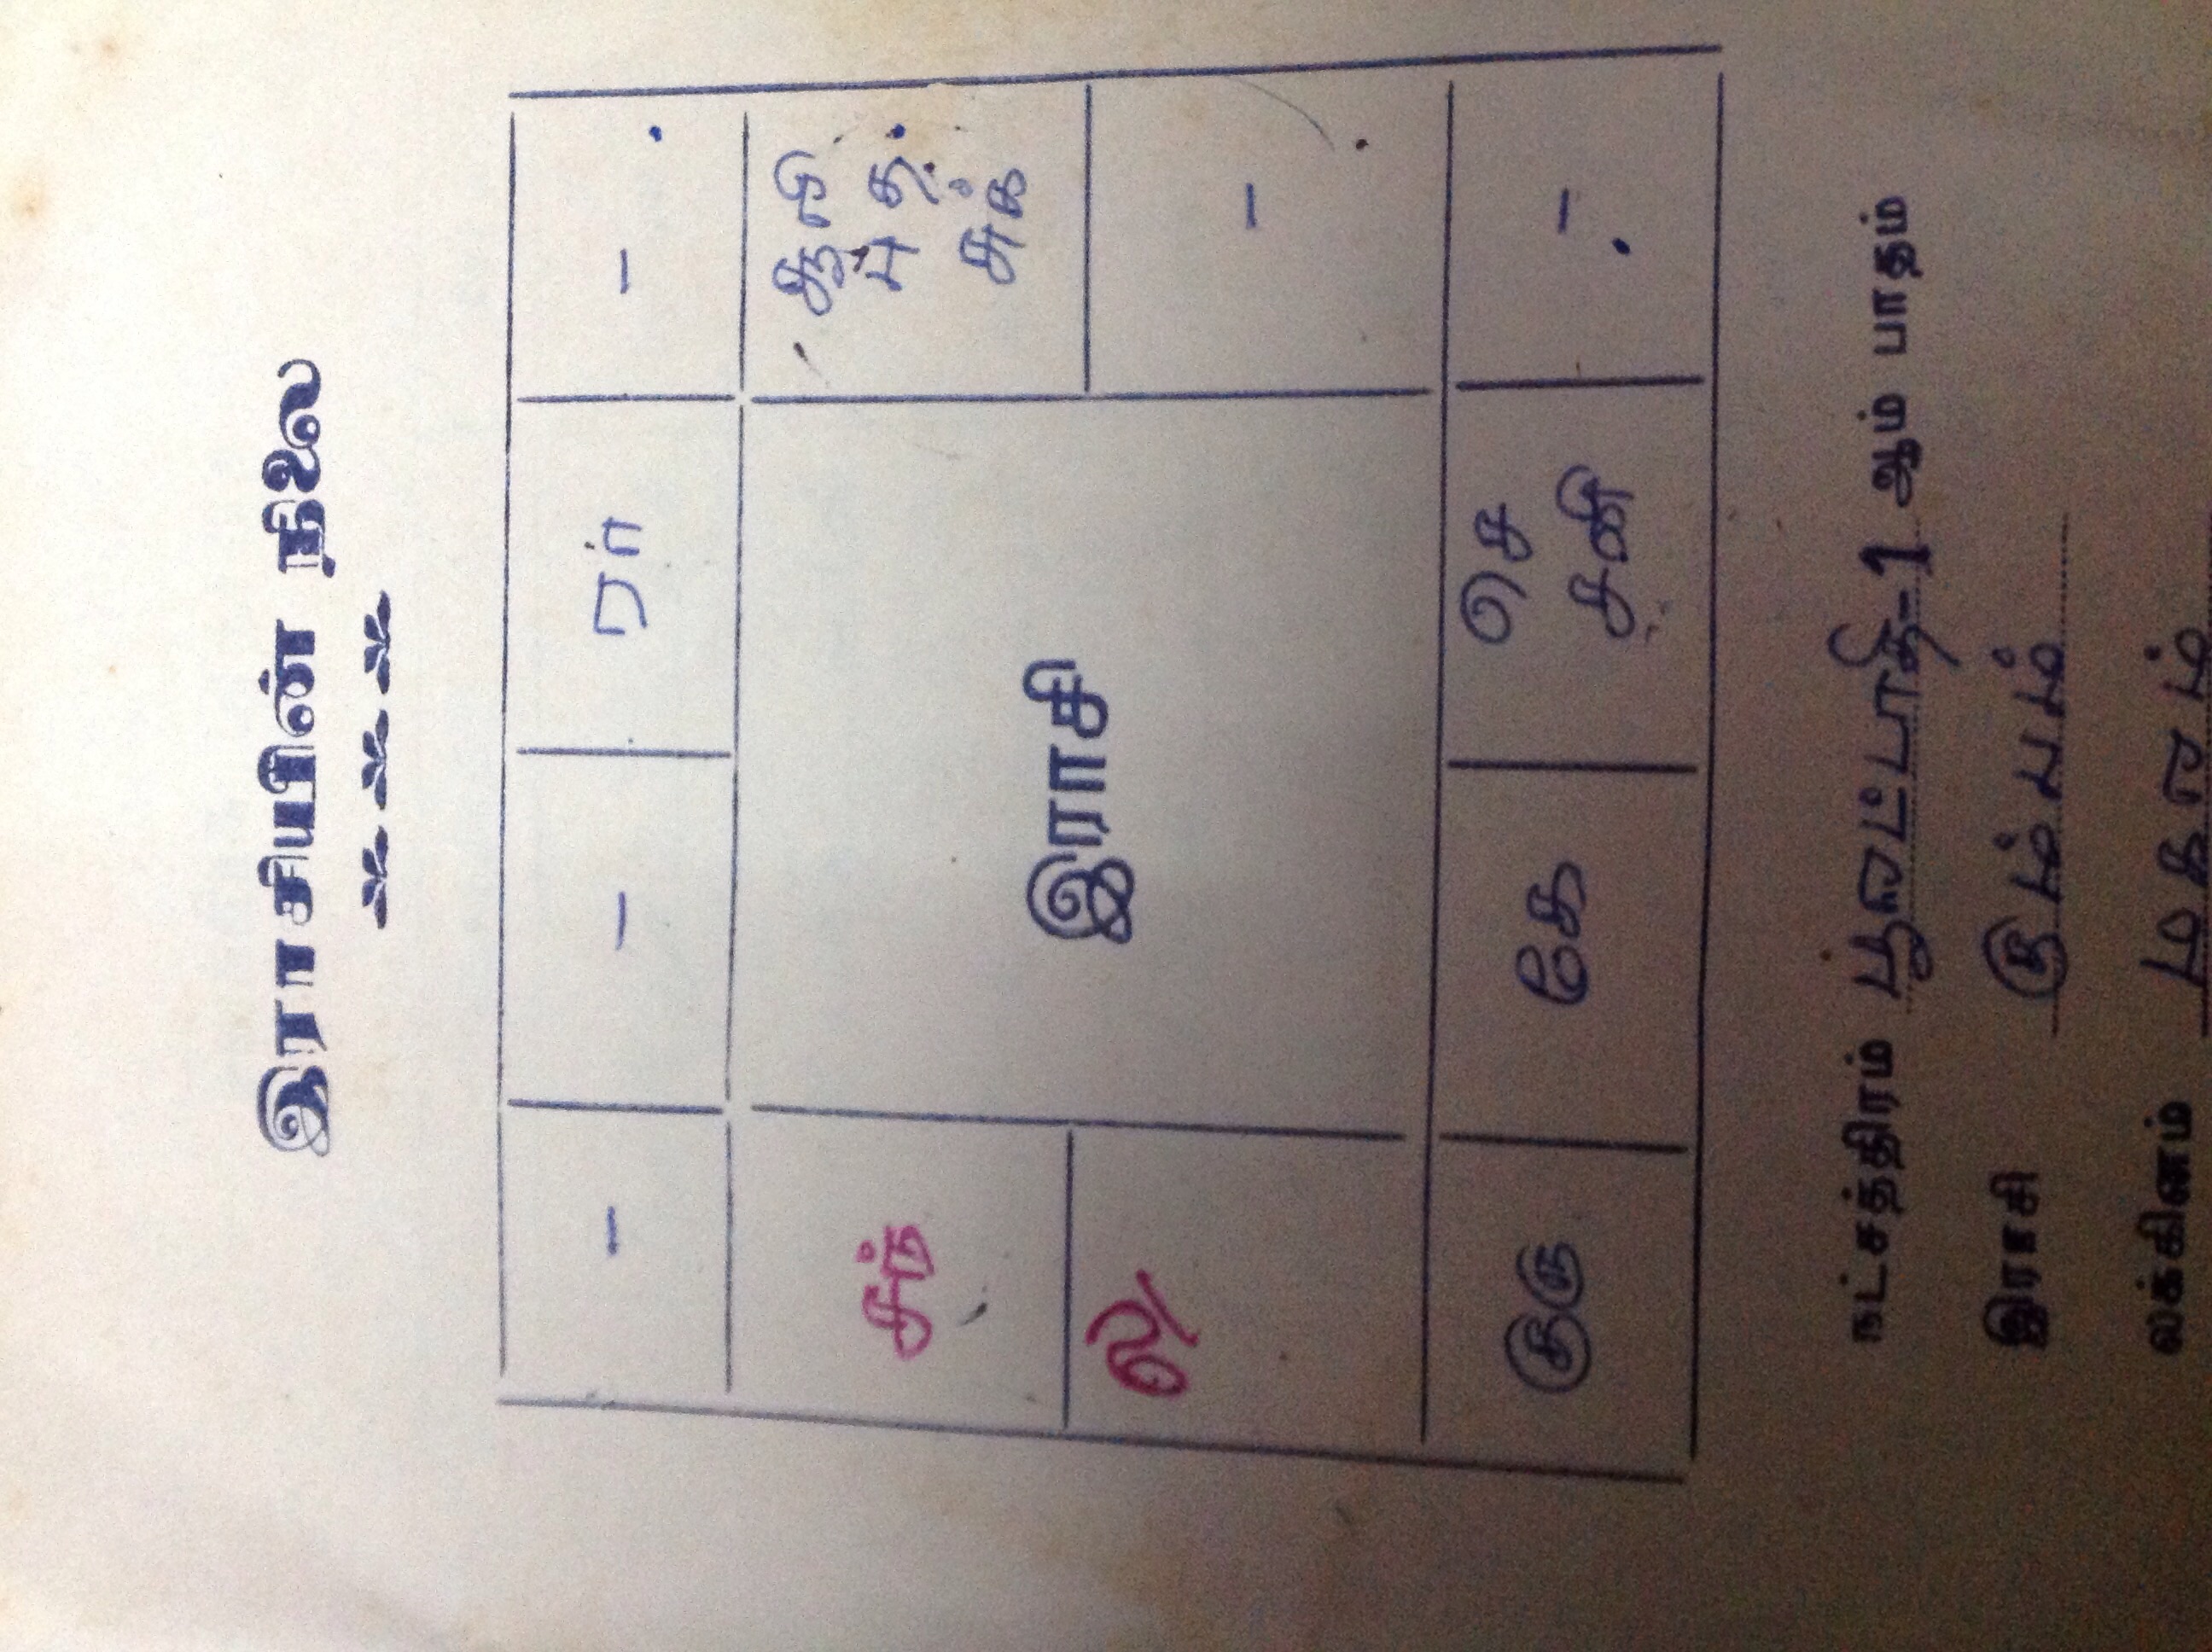 இராசியின் நிலை
-
-
ரா
-
சந்
சூரி
புத.
சுக்
இராசி
ல
-
குரு
கே
செ
சனி
-
நட்சத்திரம் பூரட்டாதி-1 ஆம் பாதம்
இராசி கும்பம்
லக்கினம் மகரம்